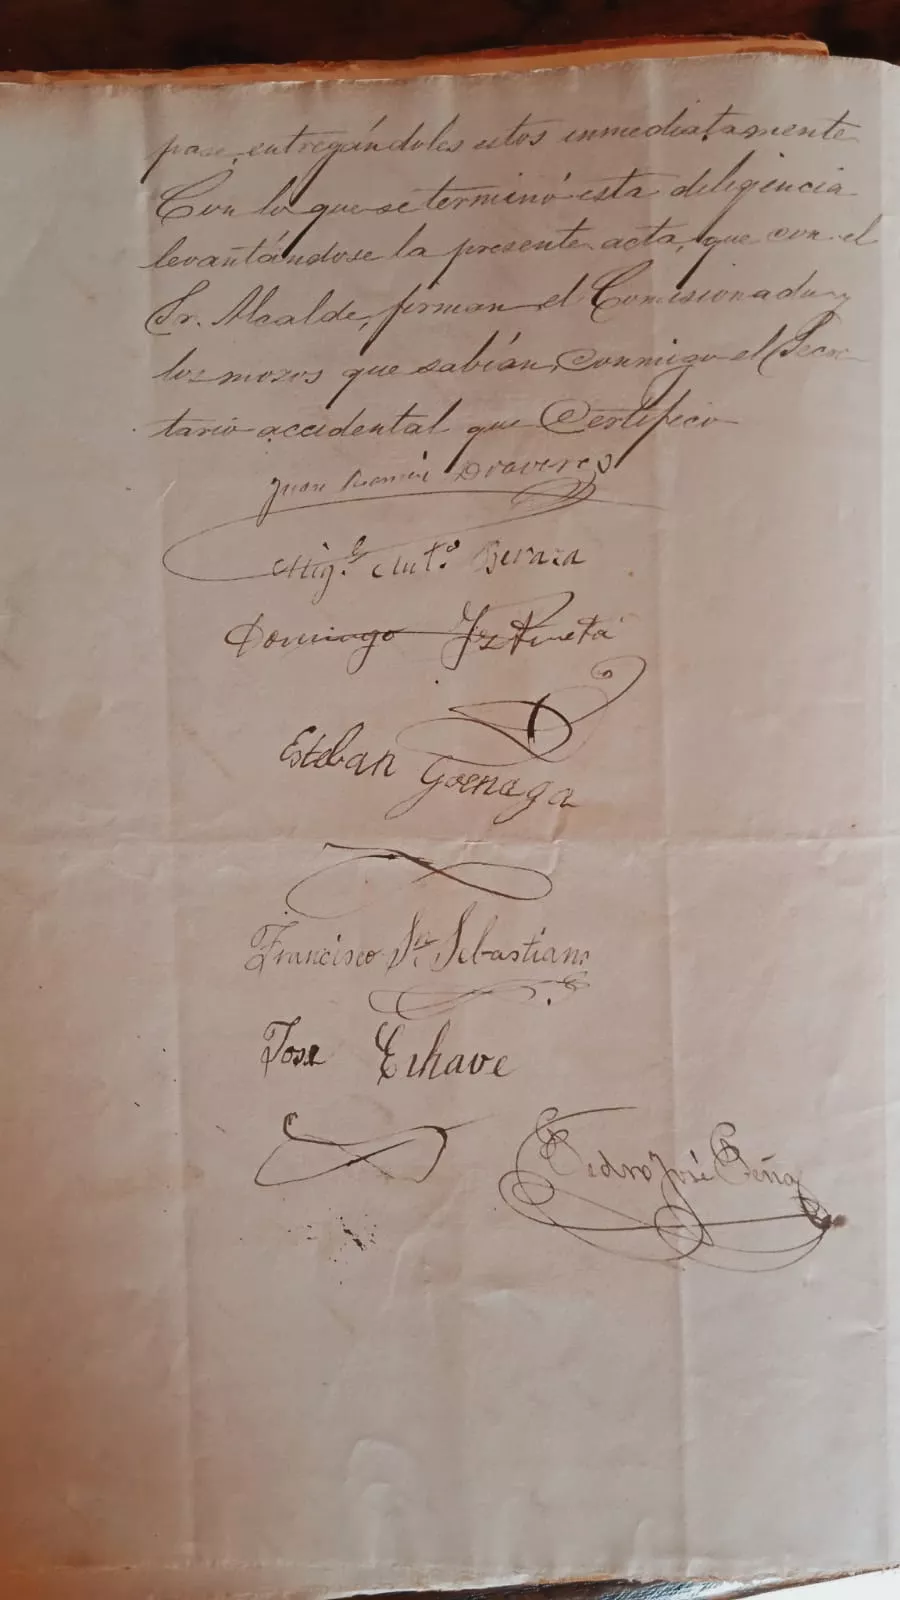 pase, entregándoles estos inmediatamente
Con lo que se terminó esta diligencia
levantándose la presente acta, que con el
Sr. Alcalde, firman el Comisionado y
los mozos que sabían, conmigo el Secre
tario accidental que Certifico
Juan Ramón
Mig.l Ant.o Beraza
Domingo
Esteban Goenaga
Francisco Sn. Sebastian
Jose Echave
Pedro José Peña